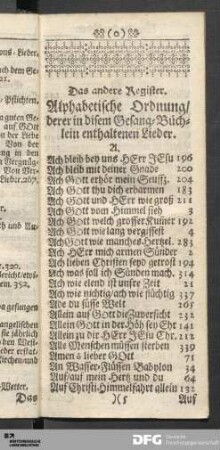 (o)
Das andere Register.
Alphabetische Ordnung/
derer in disem Gesang-Büch-
lein enthaltenen Lieder.
A.
Ach bleib bey uns HErr JEsu 196
Ach bleib mit deiner Gnade 200
Ach GOtt erhör mein Seuffz. 204
Ach Gott thu dich erbarmen 183
Ach GOtt und HErr wie groß 211
Ach Gott vom Himmel sieh 3
Ach Gott welch grosser Kum̃er 192
Ach Gott wie lang vergissest 4
Ach Gott wie manches Hertzel. 283
Ach HErr mich armen Sünder 2
Ach lieben Christen seyd getrost 194
Ach was soll ich Sünder mach. 314
Ach wie elend ist unsre Zeit 21
Ach wie nichtig/ach wie flüchtig 337
Ade du süsse Welt 265
Allein auf GOtt die Zuversicht 232
Allein Gott in der Höh sey Ehr 141
Allein zu dir HErr JEsu Chr. 212
Alle Menschen müssen sterben 339
Amen a lieber GOtt 71
An Wasser-Flüssen Babylon 34
Auf/auf mein Hertz und du 64
Auf Christi Himmelfahrt allein 132
)( 5 Auf
ons-Lieder.
Pflichten.
auf GOtt
in der Liebe
Lieder. 267.
ent. 352.
gefungen
sie jährlich
-Wetter.
Das
DFG Deutsche
Forschungsgemeinschaft